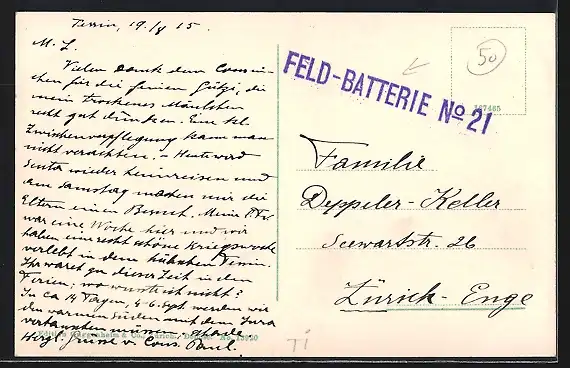 Tessin, 19/8 15.
M. L.
Vielen Dank dem Cousin-
chen für die feinen Gützi, die
mein trockenes Mäulchen
recht gut dünken. Eine kl.
Zwischenverpflegung kann man
nicht verachten. – Heute wird
Senta wieder heimreisen und
am Samstag machen mir die
Eltern einen Besuch. Meine
war eine Woche hier und wir
haben eine recht schöne Kriegswoche
verlebt in dem hübschen Tessin.
Ihr waret zu dieser Zeit in den
Ferien; wo wisst ich nicht?
In ca 14 Tagen, 4-6. Sept. werden wir
den warmen Süden mit dem Jura
vertauschen müssen, schade
Herzl. Grüsse v. Cous. Paul.
& Co., Zürich. No 13950
FELD-BATTERIE No 21
50
167485
Familie
Deppeler-Keller
Seewartstr. 26
Zürich-Enge